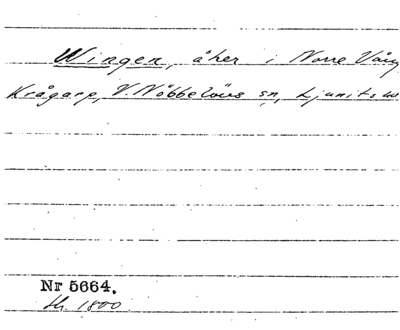 Wingen, åker i Norre Vång
Krågarp, V. Nöbbelövs sn, Ljunits
Nr 5664.
1800